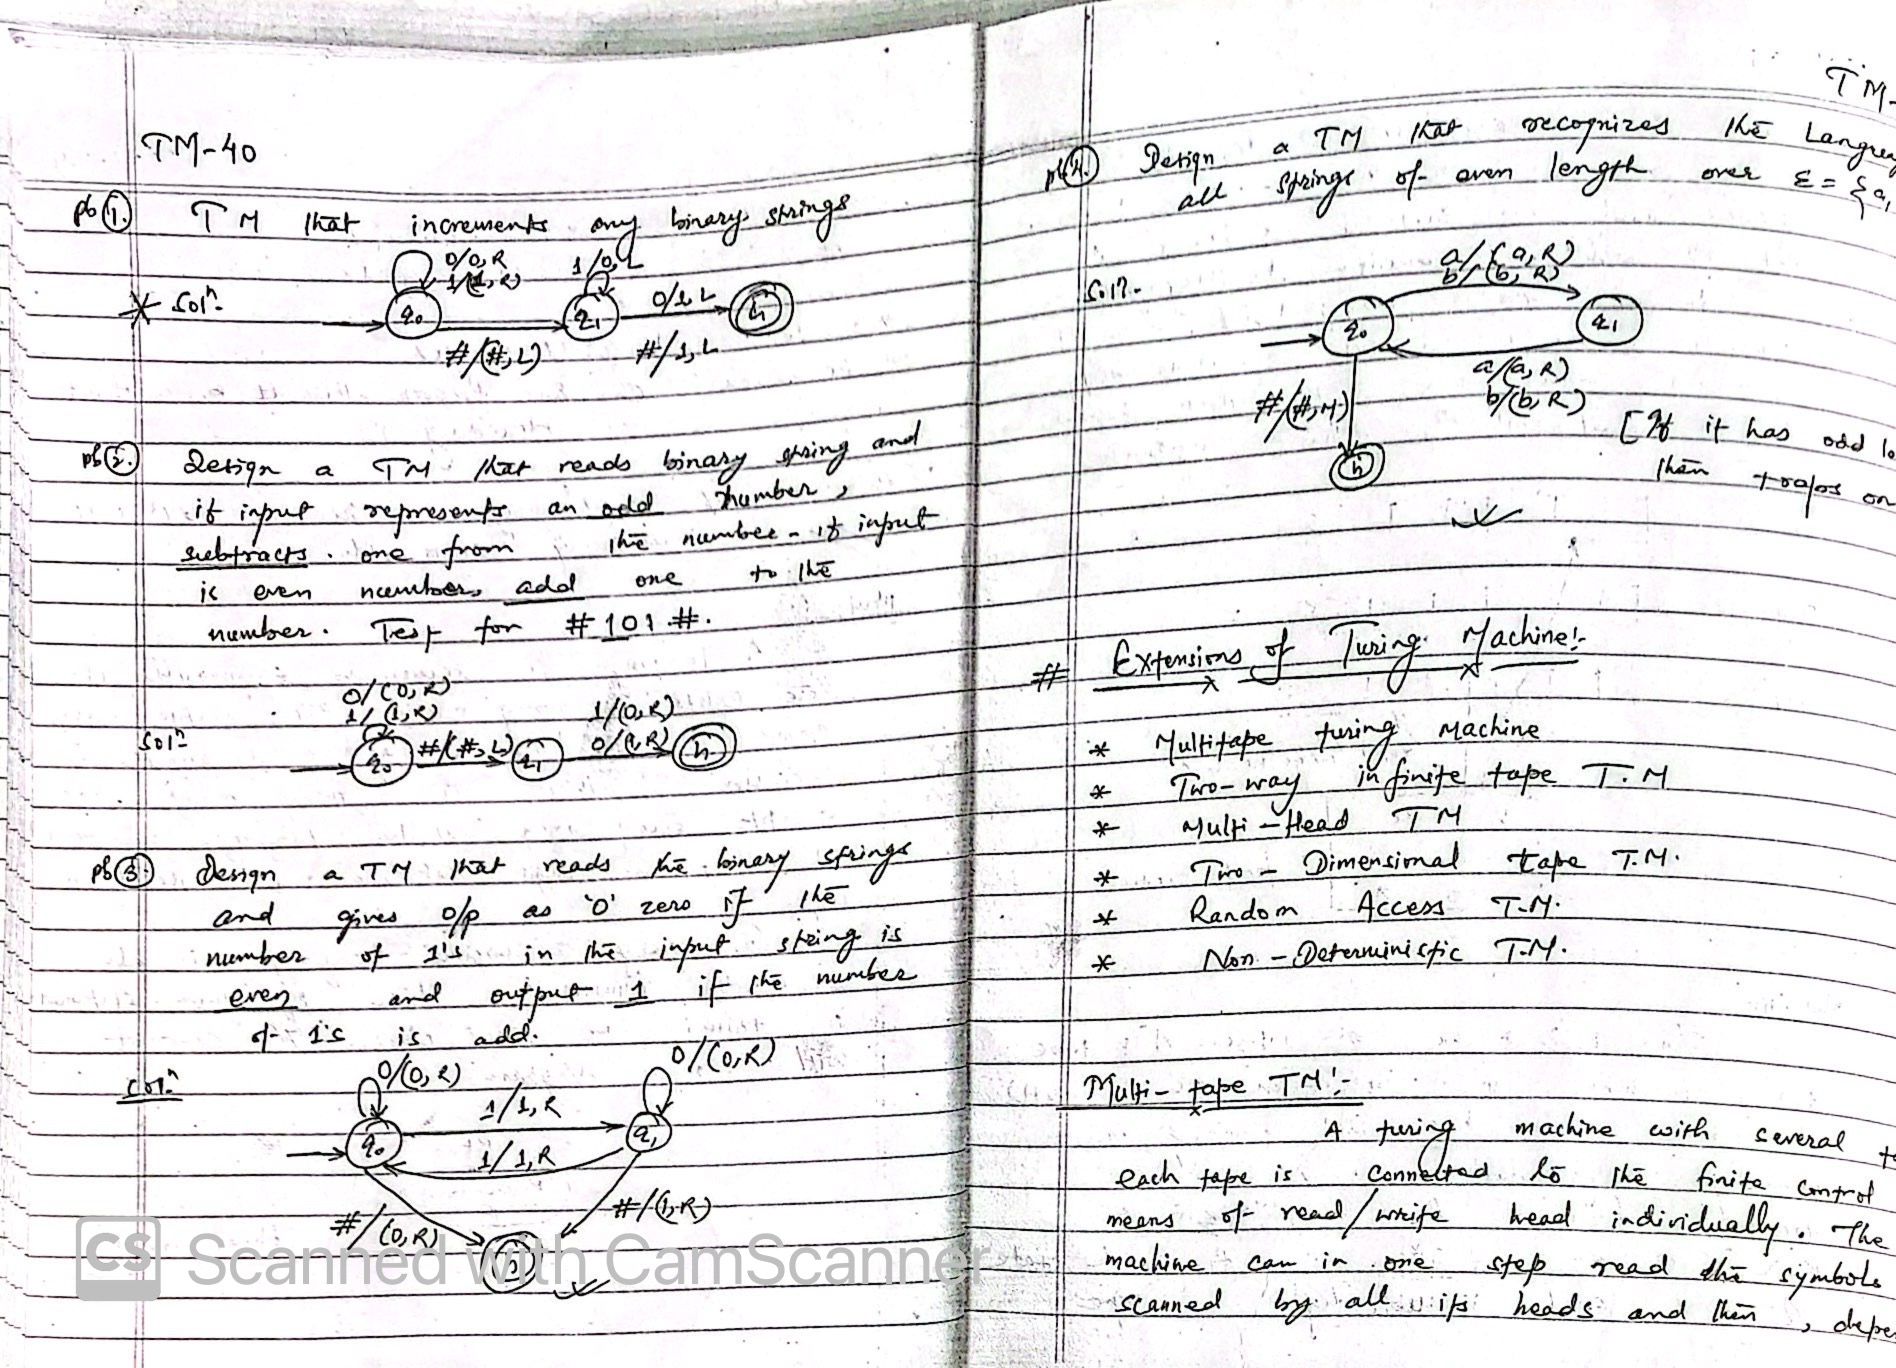 TM-40
pb 1. TM that increments any binary strings
0/0, R
1/(1, R)
1/0, L
Solⁿ
q₀
q₁
0/1, L
h
#/(#, L)
#/1, L
pb 2. Design a TM that reads binary string and
if input represents an odd number,
subtracts one from the number - if input
is even number, add one to the
number. Test for #101#.
0/(0, R)
1/(1, R)
1/(0, R)
Solⁿ
q₀
#/(#, L)
q₁
0/(1, R)
h
pb 3. Design a TM that reads the binary strings
and gives o/p as '0' zero if the
number of 1's in the input string is
even and output 1 if the number
of 1's is add.
Solⁿ
0/(0, R)
0/(0, R)
1/1, R
q₀
q₁
1/1, R
#/(0, R)
#/(1, R)
h
CS Scanned with CamScanner
TM-
pb 4. Design a TM that recognizes the
all strings of even length over Σ = {a,
a/(a, R)
b/(b, R)
Solⁿ
q₀
q₁
a/(a, R)
b/(b, R)
#/(#, H)
h
[If it has odd
than traps on
# Extensions of Turing Machine:-
* Multitape turing Machine
* Two-way infinite tape T.M
* Multi-Head TM
* Two-Dimensional tape T.M.
* Random Access T.M.
* Non-Deterministic T.M.
Multi-tape TM:-
A turing machine with several
each tape is connected to the finite control
means of read/write head individually. The
machine can in one step read the symbols
scanned by all its heads and then,